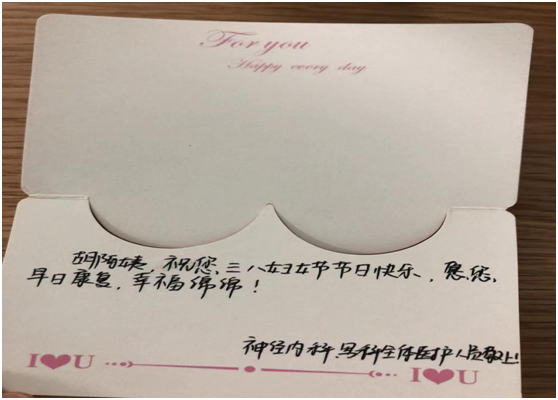 For you
Happy every day
胡阿姨,祝您三八妇女节节日快乐,愿您,
早日康复,幸福绵绵!
神经内科男科全体医护人员敬上!
I❤U I❤U